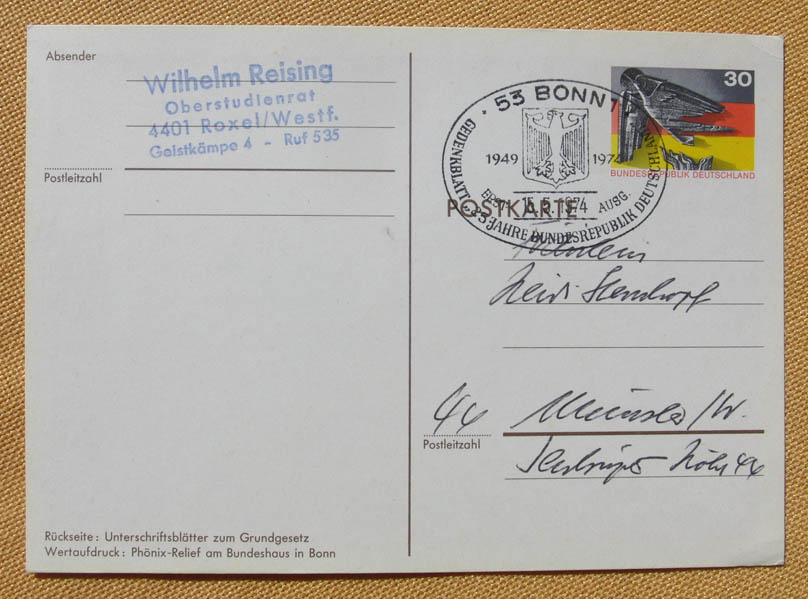 Absender
Wilhelm Reising
Oberstudienrat
4401 Roxel/Westf.
Geistkämpe 4 - Ruf 535
Postleitzahl
Rückseite: Unterschriftsblätter zum Grundgesetz
Wertaufdruck: Phönix-Relief am Bundeshaus in Bonn
30
BUNDESREPUBLIK DEUTSCHLAND
53 BONN 1
1949 1974
ERST- 15.5.1974 AUSG.
GEDENKBLATT „25 JAHRE BUNDESREPUBLIK DEUTSCHLAND“
POSTKARTE
Fräulein
Heidi
44 Münster/W.
Postleitzahl